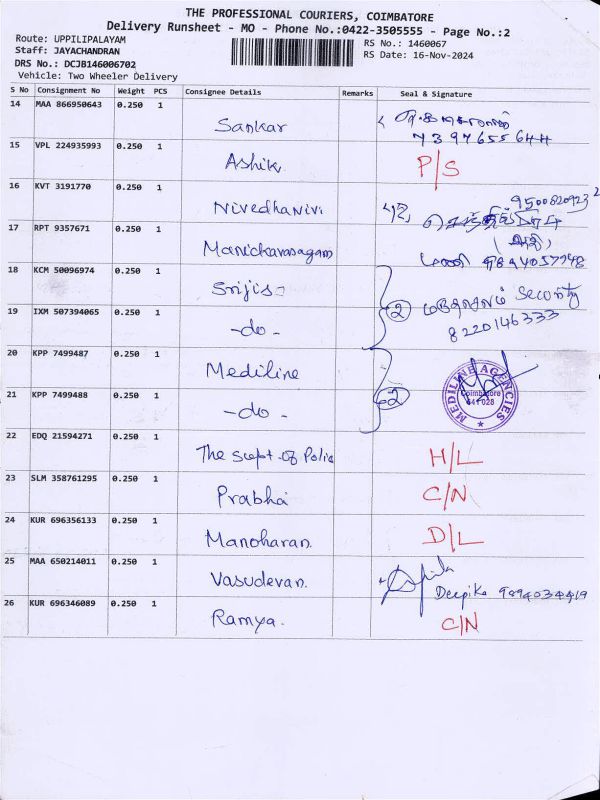 THE PROFESSIONAL COURIERS, COIMBATORE
Delivery Runsheet - MO - Phone No.:0422-3505555 - Page No.:2
Route: UPPILIPALAYAM
Staff: JAYACHANDRAN
DRS No.: DCJB146006702
Vehicle: Two Wheeler Delivery
RS No.: 1460067
RS Date: 16-Nov-2024
S No Consignment No Weight PCS Consignee Details Remarks Seal & Signature
14 MAA 866950643 0.250 1 Sankar
15 VPL 224935993 0.250 1 Ashik P/S
16 KVT 3191770 0.250 1 Nivedhanivi
17 RPT 9357671 0.250 1 Manickavasagam
18 KCM 50096974 0.250 1 Srijis
19 IXM 507394065 0.250 1 -do- 2 Security
8220146333
20 KPP 7499487 0.250 1 Mediline
21 KPP 7499488 0.250 1 -do- 2 MEDILINE AGENCIES Coimbatore 641 028
22 EDQ 21594271 0.250 1 The Supt-of Polic H/L
23 SLM 358761295 0.250 1 Prabha C/N
24 KUR 696356133 0.250 1 Manoharan. D/L
25 MAA 650214011 0.250 1 Vasudevan. Deepika 9894034419
26 KUR 696346089 0.250 1 Ramya. C/N